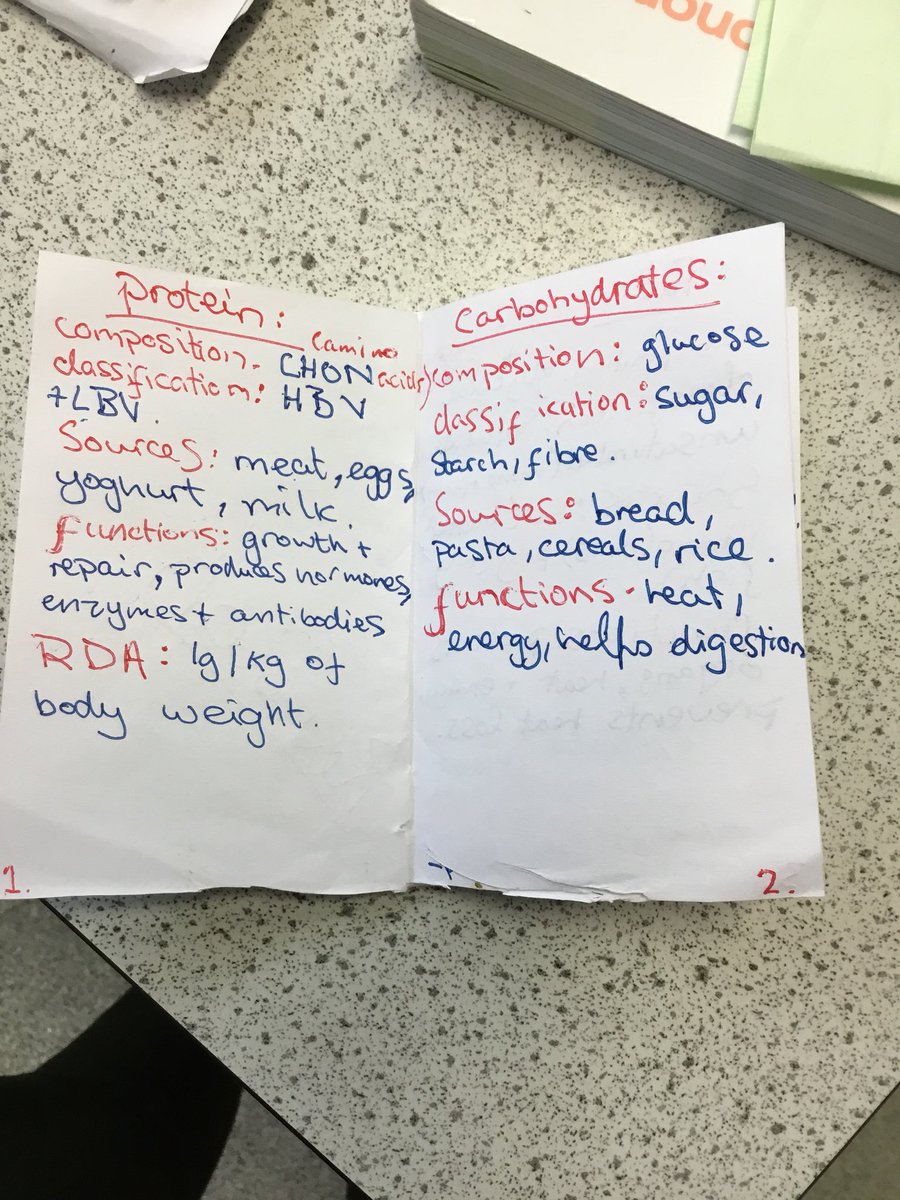 Protein:
composition. CHON (amino acids)
classification: HBV
+LBV.
Sources: meat, eggs,
yoghurt, milk.
functions: growth +
repair, produces hormones,
enzymes + antibodies
RDA: 1g/kg of
body weight.
1.
Carbohydrates:
composition: glucose
classification: sugar,
starch, fibre.
Sources: bread,
pasta, cereals, rice.
functions. heat,
energy, helps digestion
2.